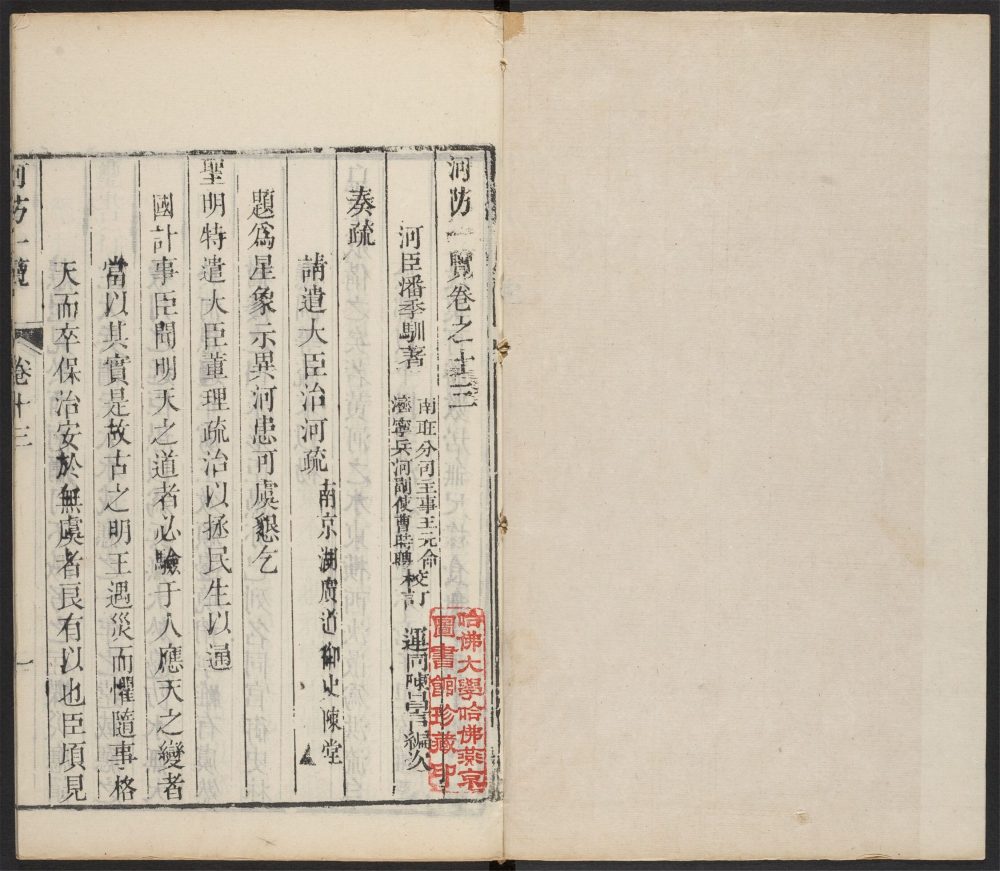 河防一覽卷之十三
河臣潘季馴著
南旺分司主事王元命
濟寧兵河副使曹時聘
校訂
運同陳昌言編次
奏疏
請遣大臣治河疏
南京湖廣道御史陳堂
題爲星象示異河患可虞懇乞
聖明特遣大臣董理疏治以拯民生以通
國計事臣聞明天之道者必驗于人應天之變者
當以其實是故古之明王遇災而懼隨事格
天而卒保治安於無虞者良有以也臣頃見
河防一覽
卷十三
一
哈佛大學哈佛燕京
圖書館珍藏印